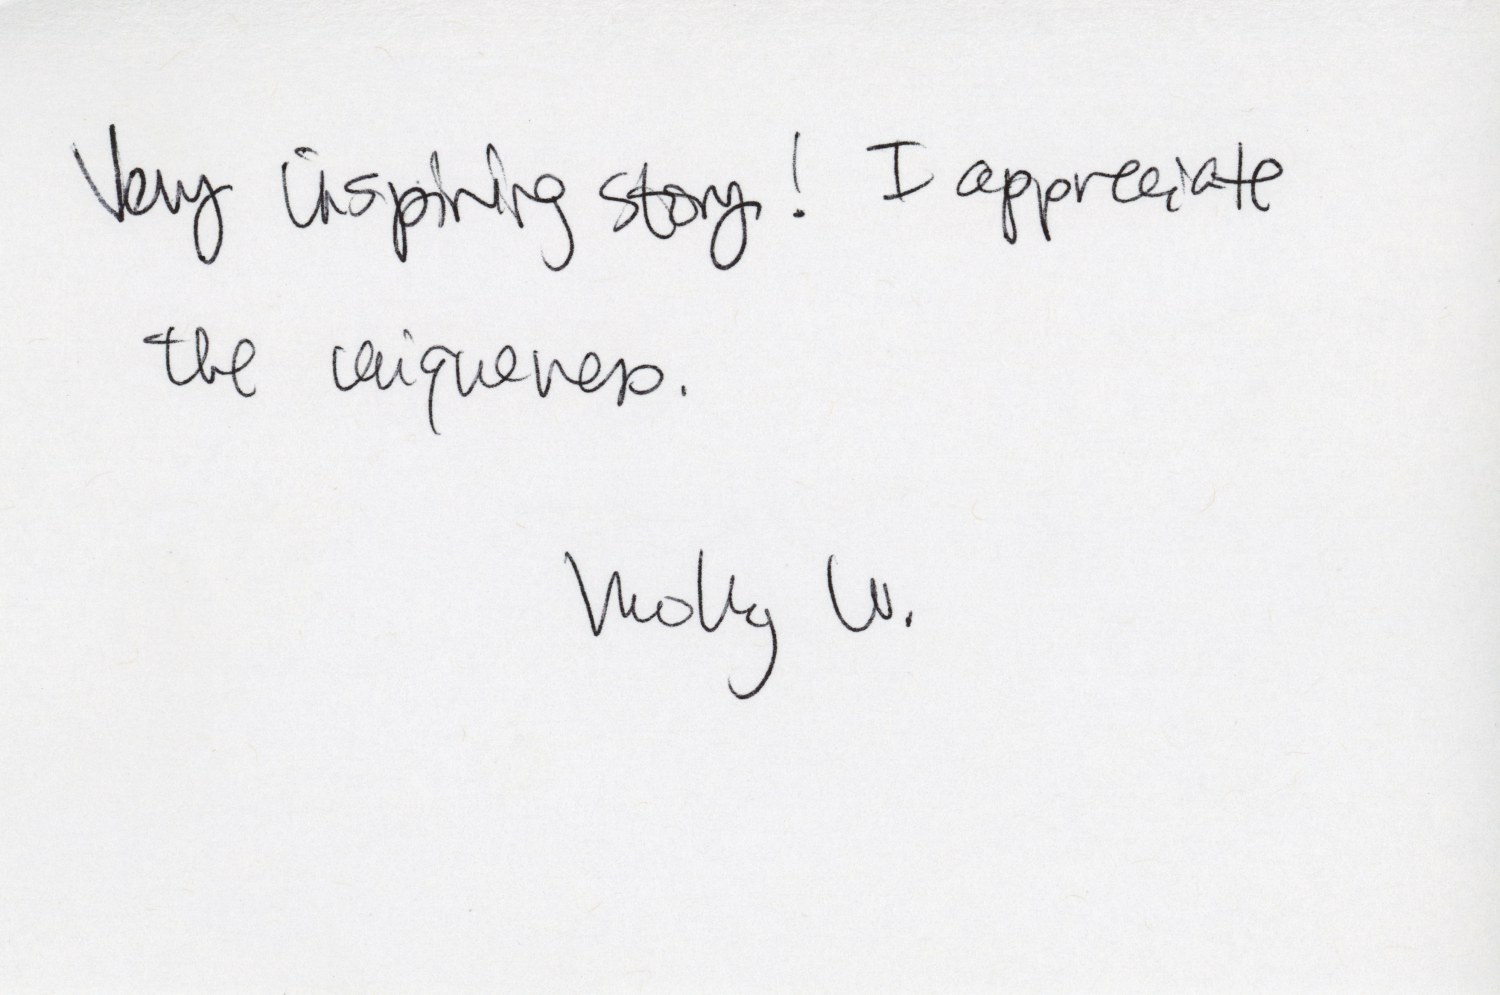 Very inspiring story! I appreciate
the uniqueness.
Molly W.